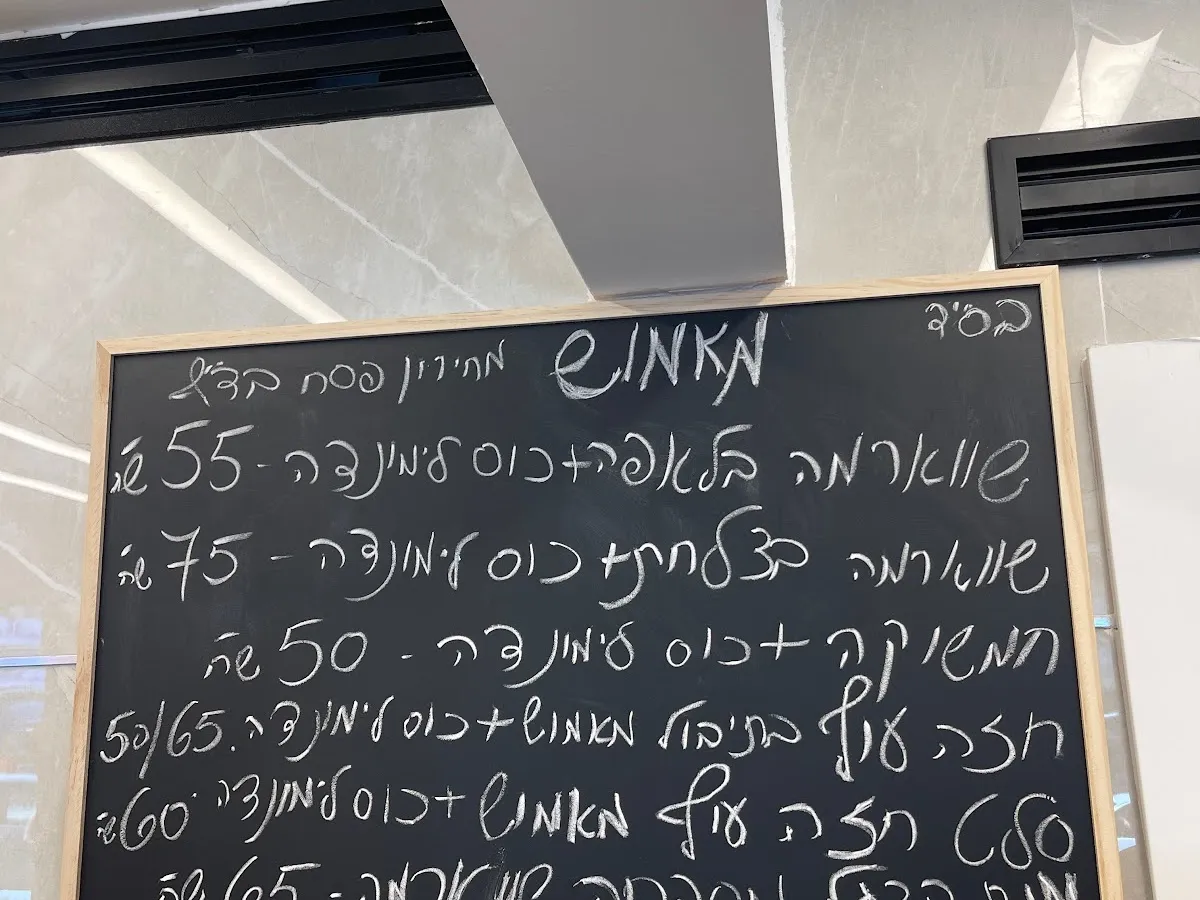 בס״ד
מאמוש מחירון פסח בד״ץ
שווארמה בלאפה+כוס לימונדה - 55 ש״ח
שווארמה בצלחת+ כוס לימונדה - 75 ש״ח
חמשוקה + כוס לימונדה - 50 ש״ח
חזה עוף בתיבול מאמוש+כוס לימונדה. 50/65
סלט חזה עוף מאמוש +כוס לימונדה 60 ש״ח
שווארמה - 65 ש״ח